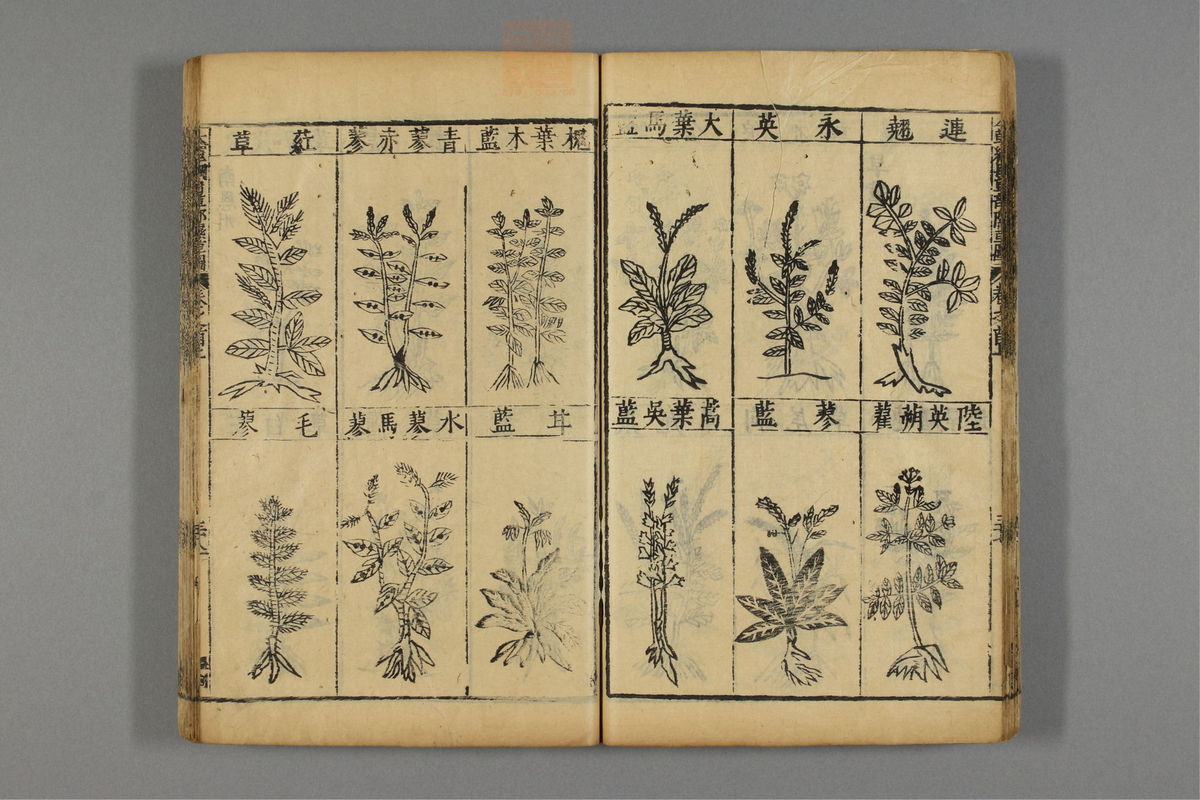 連翹
永英
大葉馬藍
陸英蒴藋
蓼藍
蒿葉吳藍
槐葉木藍
青蓼赤蓼
葒草
甘藍
水蓼馬蓼
毛蓼